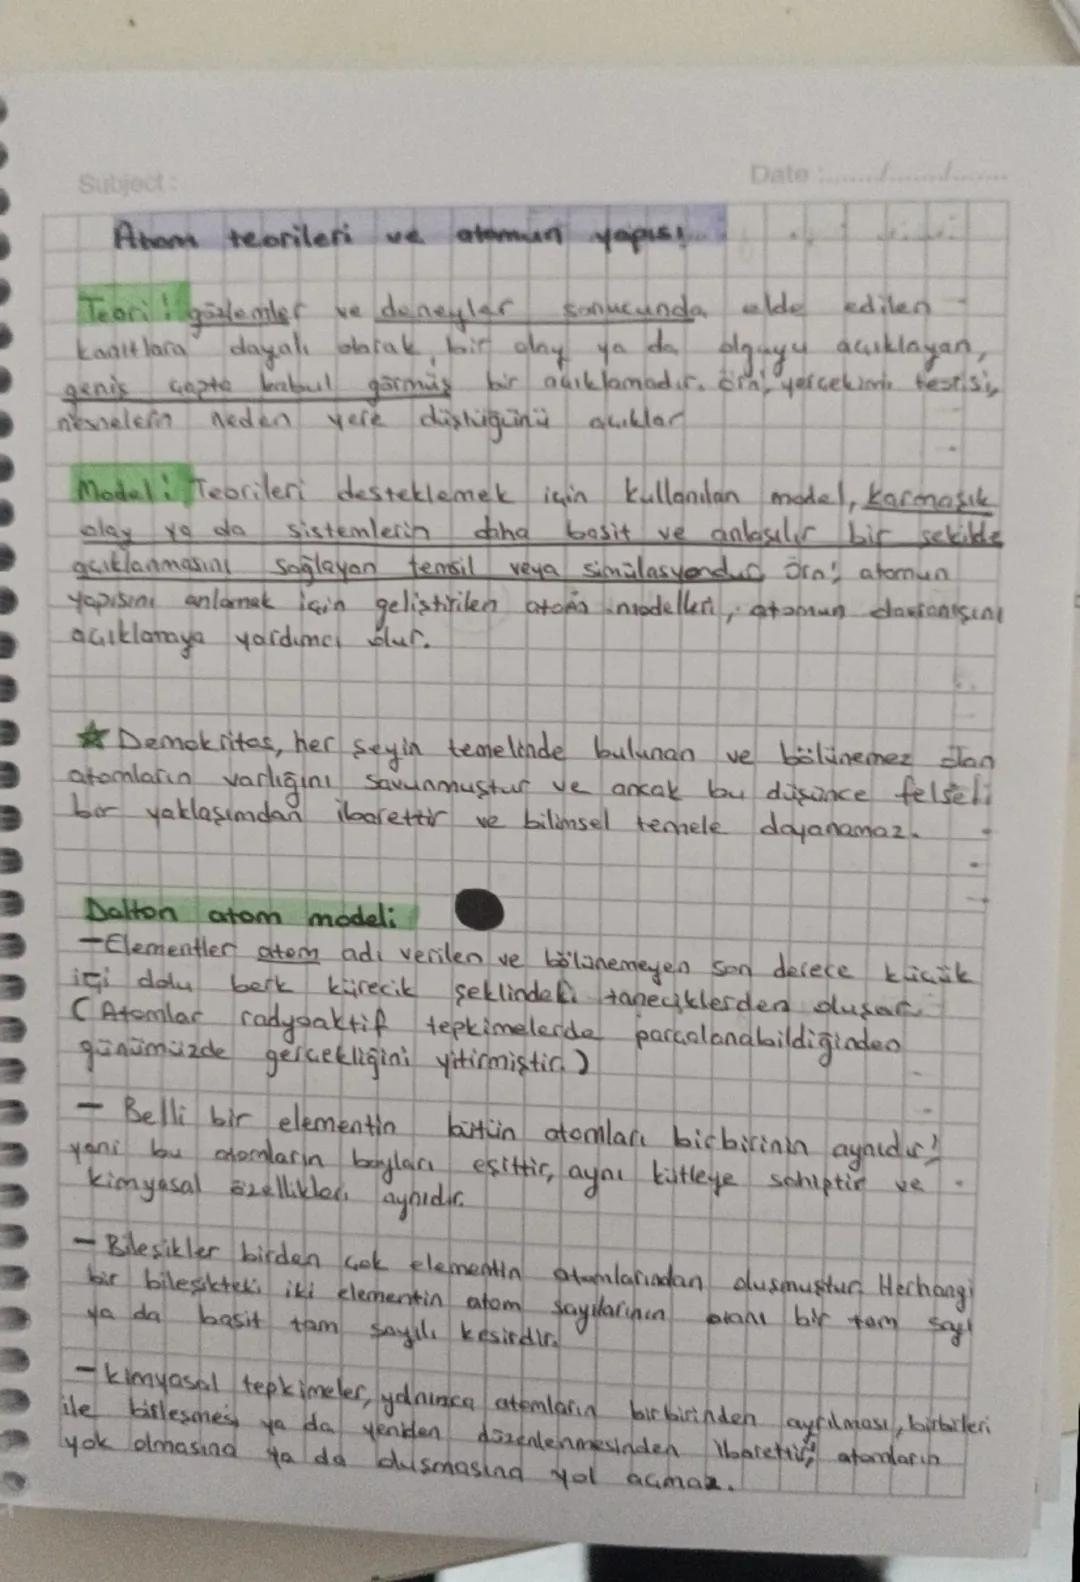 Subject:
Date :......./......./.......
Atom teorileri ve atomun yapısı
Teori: gözlemler ve deneyler sonucunda elde edilen
kanıtlara dayalı olarak, bir olay ya da olguyu açıklayan,
geniş çapta kabul görmüş bir açıklamadır. Örn; yerçekimi teorisi,
nesnelerin neden yere düştüğünü açıklar
Model: Teorileri desteklemek için kullanılan model, karmaşık
olay ya da sistemlerin daha basit ve anlaşılır bir şekilde
açıklanmasını sağlayan temsil veya simülasyondur. Örn; atomun
yapısını anlamak için geliştirilen atom modelleri, atomun davranışını
açıklamaya yardımcı olur.
☆ Demokritos, her şeyin temelinde bulunan ve bölünemez olan
atomların varlığını savunmuştur ve ancak bu düşünce felsefi
bir yaklaşımdan ibarettir ve bilimsel temele dayanamaz.
Dalton atom modeli
- Elementler atom adı verilen ve bölünemeyen son derece küçük
içi dolu berk kürecik şeklindeki taneciklerden oluşur.
(Atomlar radyoaktif tepkimelerde parçalanabildiğinden
günümüzde gerçekliğini yitirmiştir.)
- Belli bir elementin bütün atomları birbirinin aynıdır;
yani bu atomların boyları eşittir, aynı kütleye sahiptir ve
kimyasal özellikleri aynıdır.
- Bileşikler birden çok elementin atomlarından oluşmuştur. Herhangi
bir bileşikteki iki elementin atom sayılarının oranı bir tam sayı
ya da basit tam sayılı kesirdir.
- Kimyasal tepkimeler, yalnızca atomların birbirinden ayrılması, birbirleri
ile birleşmesi ya da yeniden düzenlenmesinden ibarettir; atomların
yok olmasına ya da oluşmasına yol açmaz.